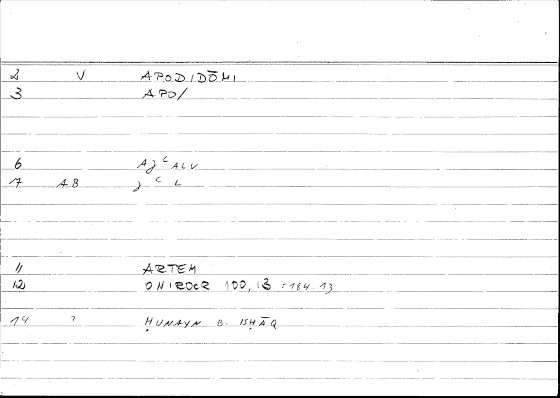 2 V APODIDŌMI
3 APO/
6 AǧʿALU
7 AB ǧ ʿ L
11 ARTEM
12 ONIROCR 100, 13 = 184.13
14 ? ḤUNAYN B. ISḤĀQ